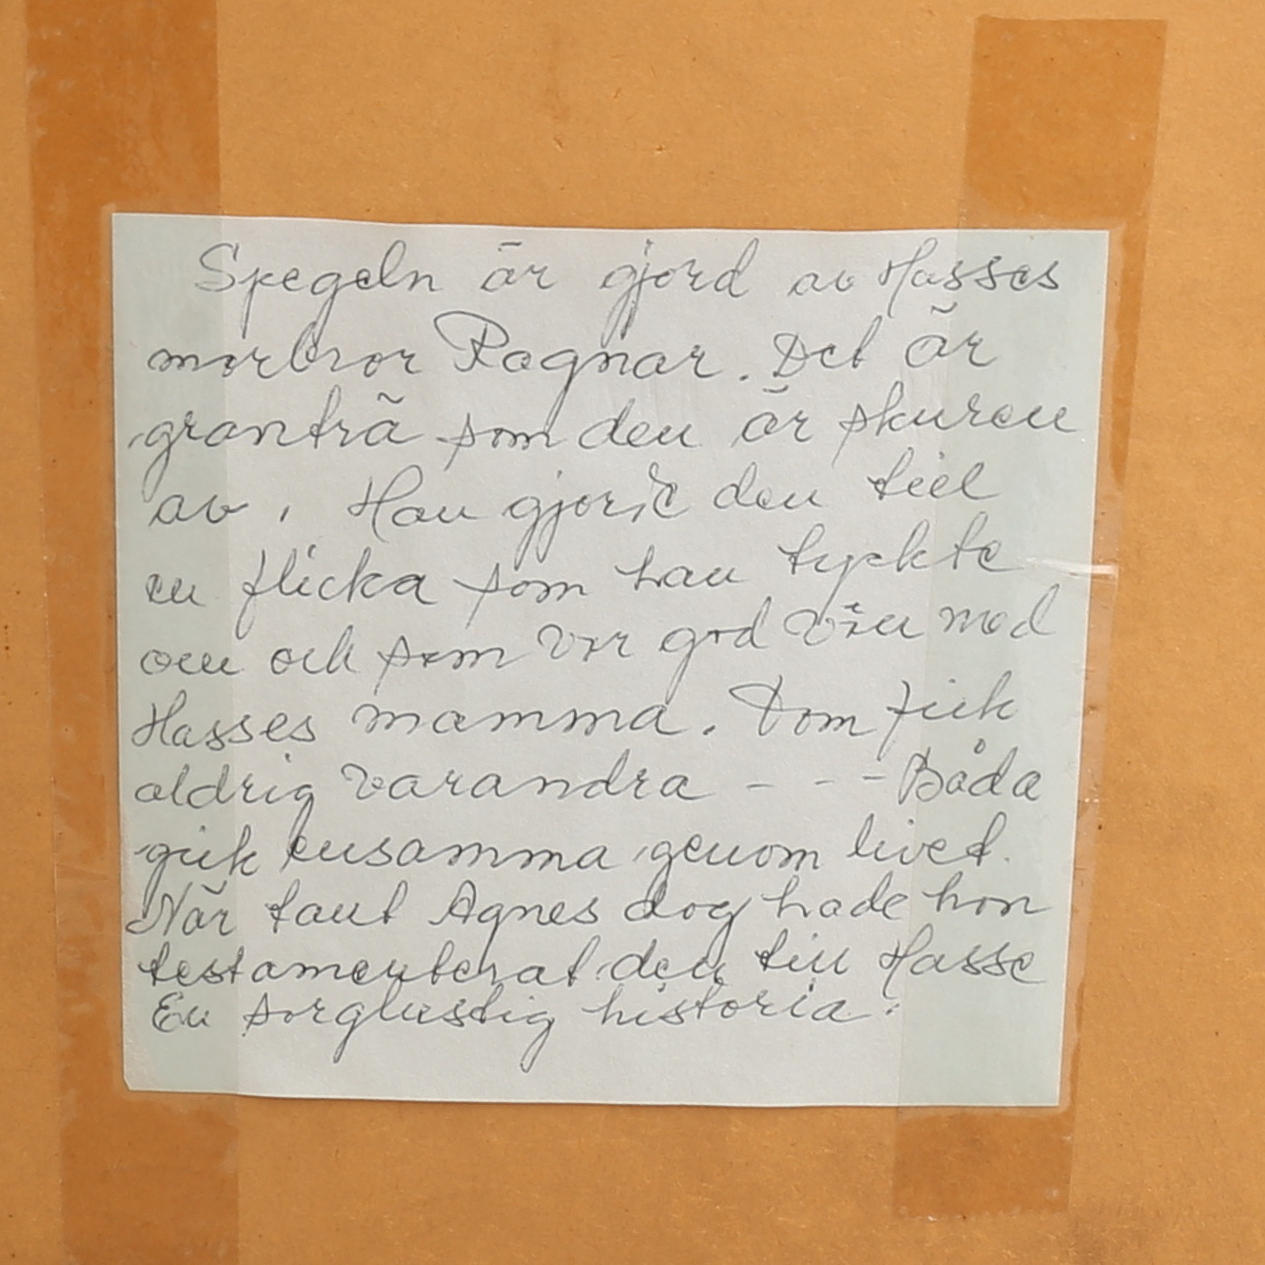 Spegeln är gjord av Hasses
morbror Ragnar. Det är
granträ som den är skuren
av. Han gjorde den till
en flicka som han tyckte
om och som var god vän med
Hasses mamma. Dom fick
aldrig varandra - - - Båda
gick ensamma genom livet.
När tant Agnes dog hade hon
testamenterat den till Hasse
En sorglustig historia.